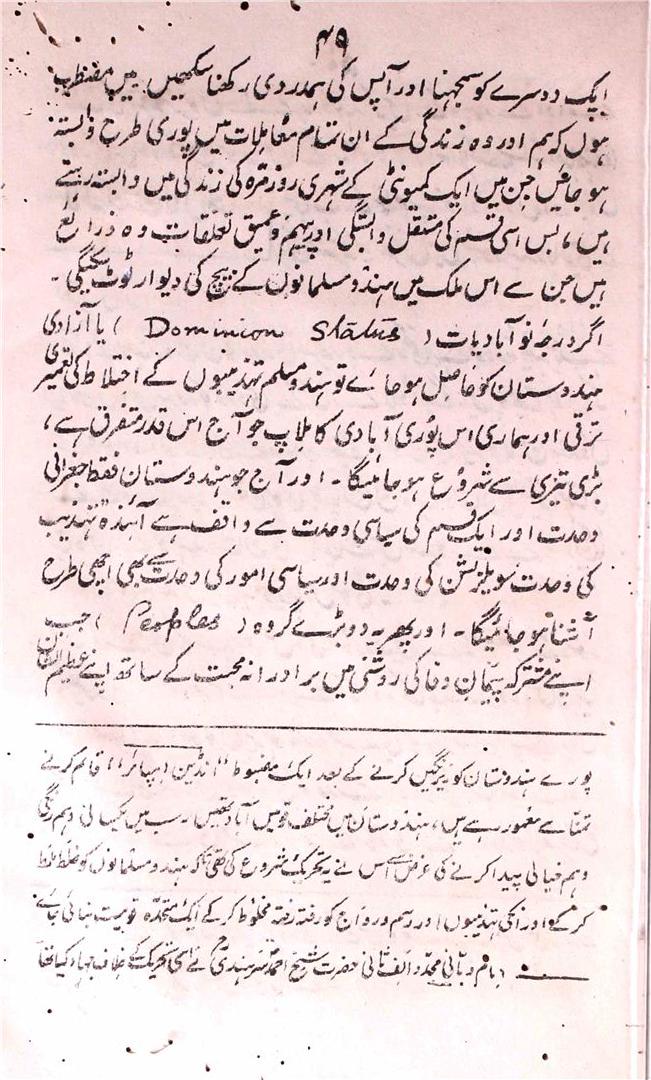 ۴۹
ایک دوسرے کو سمجھنا اور آپس کی ہمدردی رکھنا سکھیں۔ میں مضطرب
ہوں کہ ہم اور وہ زندگی کے ان تمام معاملات میں پوری طرح وابستہ
ہو جائیں جن میں ایک کمیونٹی کے شہری روزمرہ کی زندگی میں وابستہ رہتے
ہیں، بس اسی قسم کی مستقل وابستگی اور پیہم و عمیق تعلقات وہ ذرائع
ہیں جن سے اس ملک میں ہندو مسلمانوں کے بیچ کی دیوار ٹوٹ سکیگی۔
اگر درجہ نوآبادیات ( Dominion Status ) یا آزادی
ہندوستان کو حاصل ہو جائے تو ہندو مسلم تہذیبوں کے اختلاط کی تعمیری
ترقی اور ہماری اس پوری آبادی کا ملاپ جو آج اس قدر متفرق ہے،
بڑی تیزی سے شروع ہو جائیگا۔ اور آج جو ہندوستان فقط جغرافی
وحدت اور ایک قسم کی سیاسی وحدت سے واقف ہے آئندہ تہذیب
کی وحدت سویلزیشن کی وحدت اور سیاسی امور کی وحدت سے بھی اچھی طرح
آشنا ہو جائیگا۔ اور پھر یہ دو بڑے گروہ ( Peoples ) جب
اپنے مشترکہ پیمانِ وفا کی روشنی میں برادرانہ محبت کے ساتھ اپنے عظیم الشان
پورے ہندوستان کو زیرنگیں کرنے کے بعد ایک مضبوط "انڈین ایمپائر" قائم کرنے
تمنا سے معمور رہے ہیں، ہندوستان میں مختلف قومیں آباد تھیں سب میں یکسانی و ہم رنگی
و ہم خیالی پیدا کرنے کی غرض سے اس نے یہ تحریک شروع کی تھی تاکہ ہندو مسلمانوں کو خلط ملط
کر کے اور انکی تہذیبوں اور رسم و رواج کو رفتہ رفتہ مخلوط کر کے ایک متحدہ قومیت بنائی جائے
امام ربانی مجدد الف ثانی حضرت شیخ احمد سرہندیؒ نے اسی تحریک کے خلاف جہاد کیا تھا